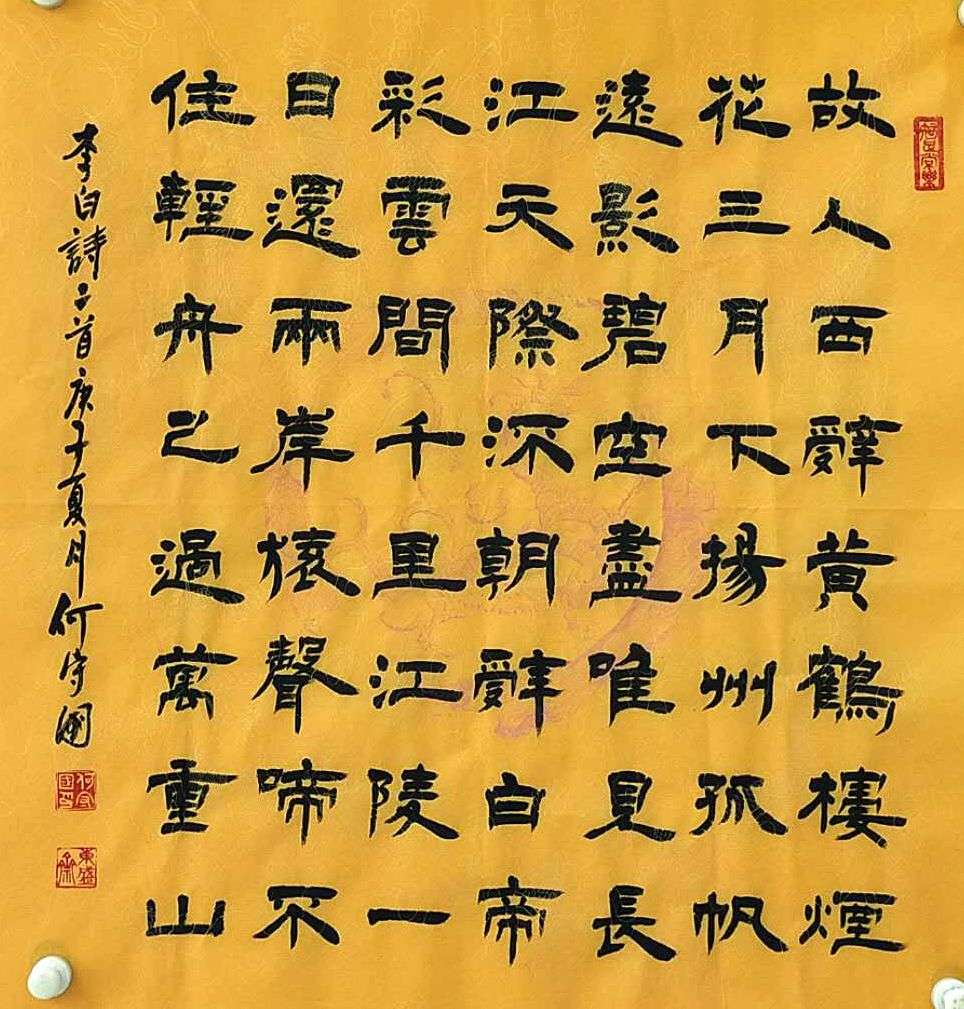 故人西辭黃鶴樓煙
花三月下揚州孤帆
遠影碧空盡唯見長
江天際流朝辭白帝
彩雲間千里江陵一
日還兩岸猿聲啼不
住輕舟已過萬重山
李白詩二首庚子夏月何守國
知足常樂